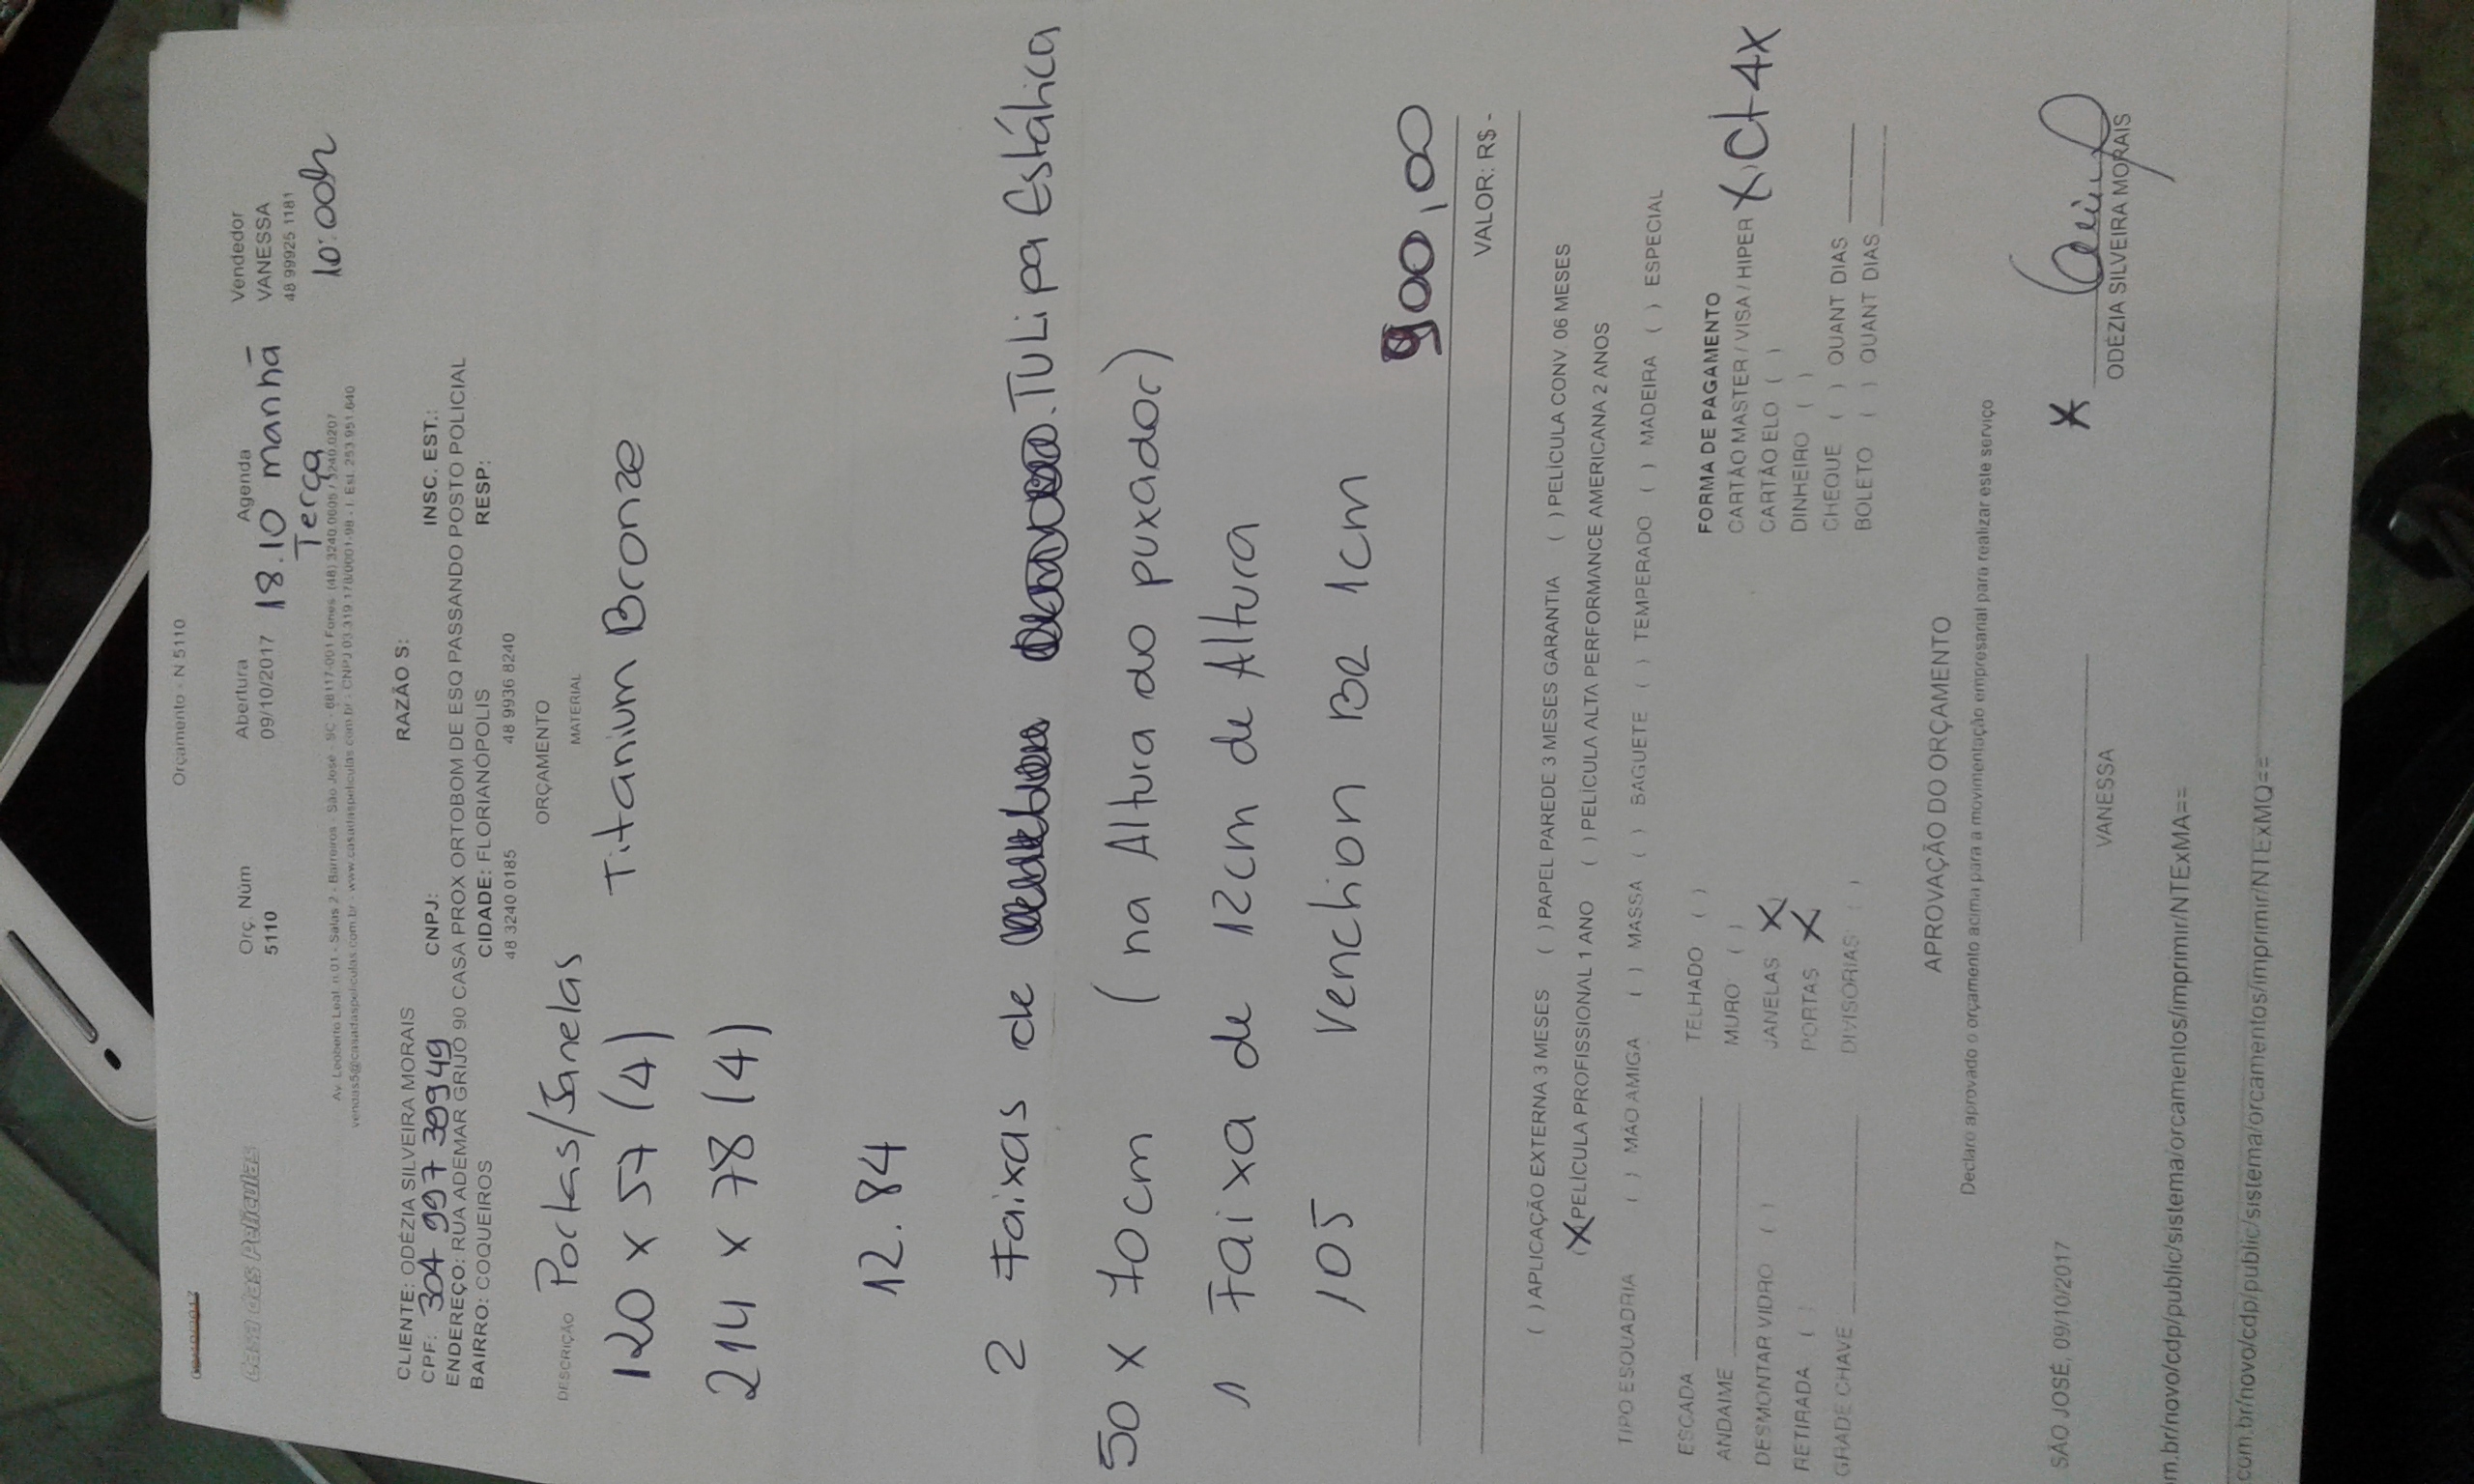 Orçamento - N 5110
Casa das Películas
Orç. Núm
5110
Abertura
09/10/2017
Agenda
18.10 manhã
Terça
Vendedor
VANESSA
48 99925 1181
10:00h
Av. Leoberto Leal, n.01 - Salas 2 - Barreiros - São José - SC - 88117-001 Fones: (48) 3240.0605 / 3240.0207
vendas5@casadaspeliculas.com.br - www.casadaspeliculas.com.br - CNPJ 03.319.178/0001-98 - I. Est. 253.951.640
CLIENTE: ODÉZIA SILVEIRA MORAIS RAZÃO S:
CPF: 304 997 399 49 CNPJ: INSC. EST.:
ENDEREÇO: RUA ADEMAR GRIJO 90 CASA PROX ORTOBOM DE ESQ PASSANDO POSTO POLICIAL
BAIRRO: COQUEIROS CIDADE: FLORIANÓPOLIS RESP:
48 3240 0185 48 9936 8240
ORÇAMENTO
DESCRIÇÃO MATERIAL
Portas/Janelas
120 x 57 (4) Titanium Bronze
214 x 78 (4)
12.84
2 Faixas de TULipa Estática
50 x 70cm (na Altura do puxador)
1 Faixa de 12cm de Altura
105 Venchion B2 1cm
900,00
VALOR: R$ -
( ) APLICAÇÃO EXTERNA 3 MESES ( ) PAPEL PAREDE 3 MESES GARANTIA ( ) PELÍCULA CONV. 06 MESES
(X) PELÍCULA PROFISSIONAL 1 ANO ( ) PELÍCULA ALTA PERFORMANCE AMERICANA 2 ANOS
TIPO ESQUADRIA ( ) MÃO AMIGA ( ) MASSA ( ) BAGUETE ( ) TEMPERADO ( ) MADEIRA ( ) ESPECIAL
ESCADA
ANDAIME
DESMONTAR VIDRO ( )
RETIRADA ( )
GRADE CHAVE
TELHADO ( )
MURO ( )
JANELAS X
PORTAS X
DIVISORIAS ( )
FORMA DE PAGAMENTO
CARTÃO MASTER / VISA / HIPER X Ct 4X
CARTÃO ELO ( )
DINHEIRO ( )
CHEQUE ( ) QUANT DIAS
BOLETO ( ) QUANT DIAS
APROVAÇÃO DO ORÇAMENTO
Declaro aprovado o orçamento acima para a movimentação empresarial para realizar este serviço
SÃO JOSÉ, 09/10/2017
VANESSA
X
ODÉZIA SILVEIRA MORAIS
m.br/novo/cdp/public/sistema/orcamentos/imprimir/NTExMA==
com.br/novo/cdp/public/sistema/orcamentos/imprimir/NTExMQ==